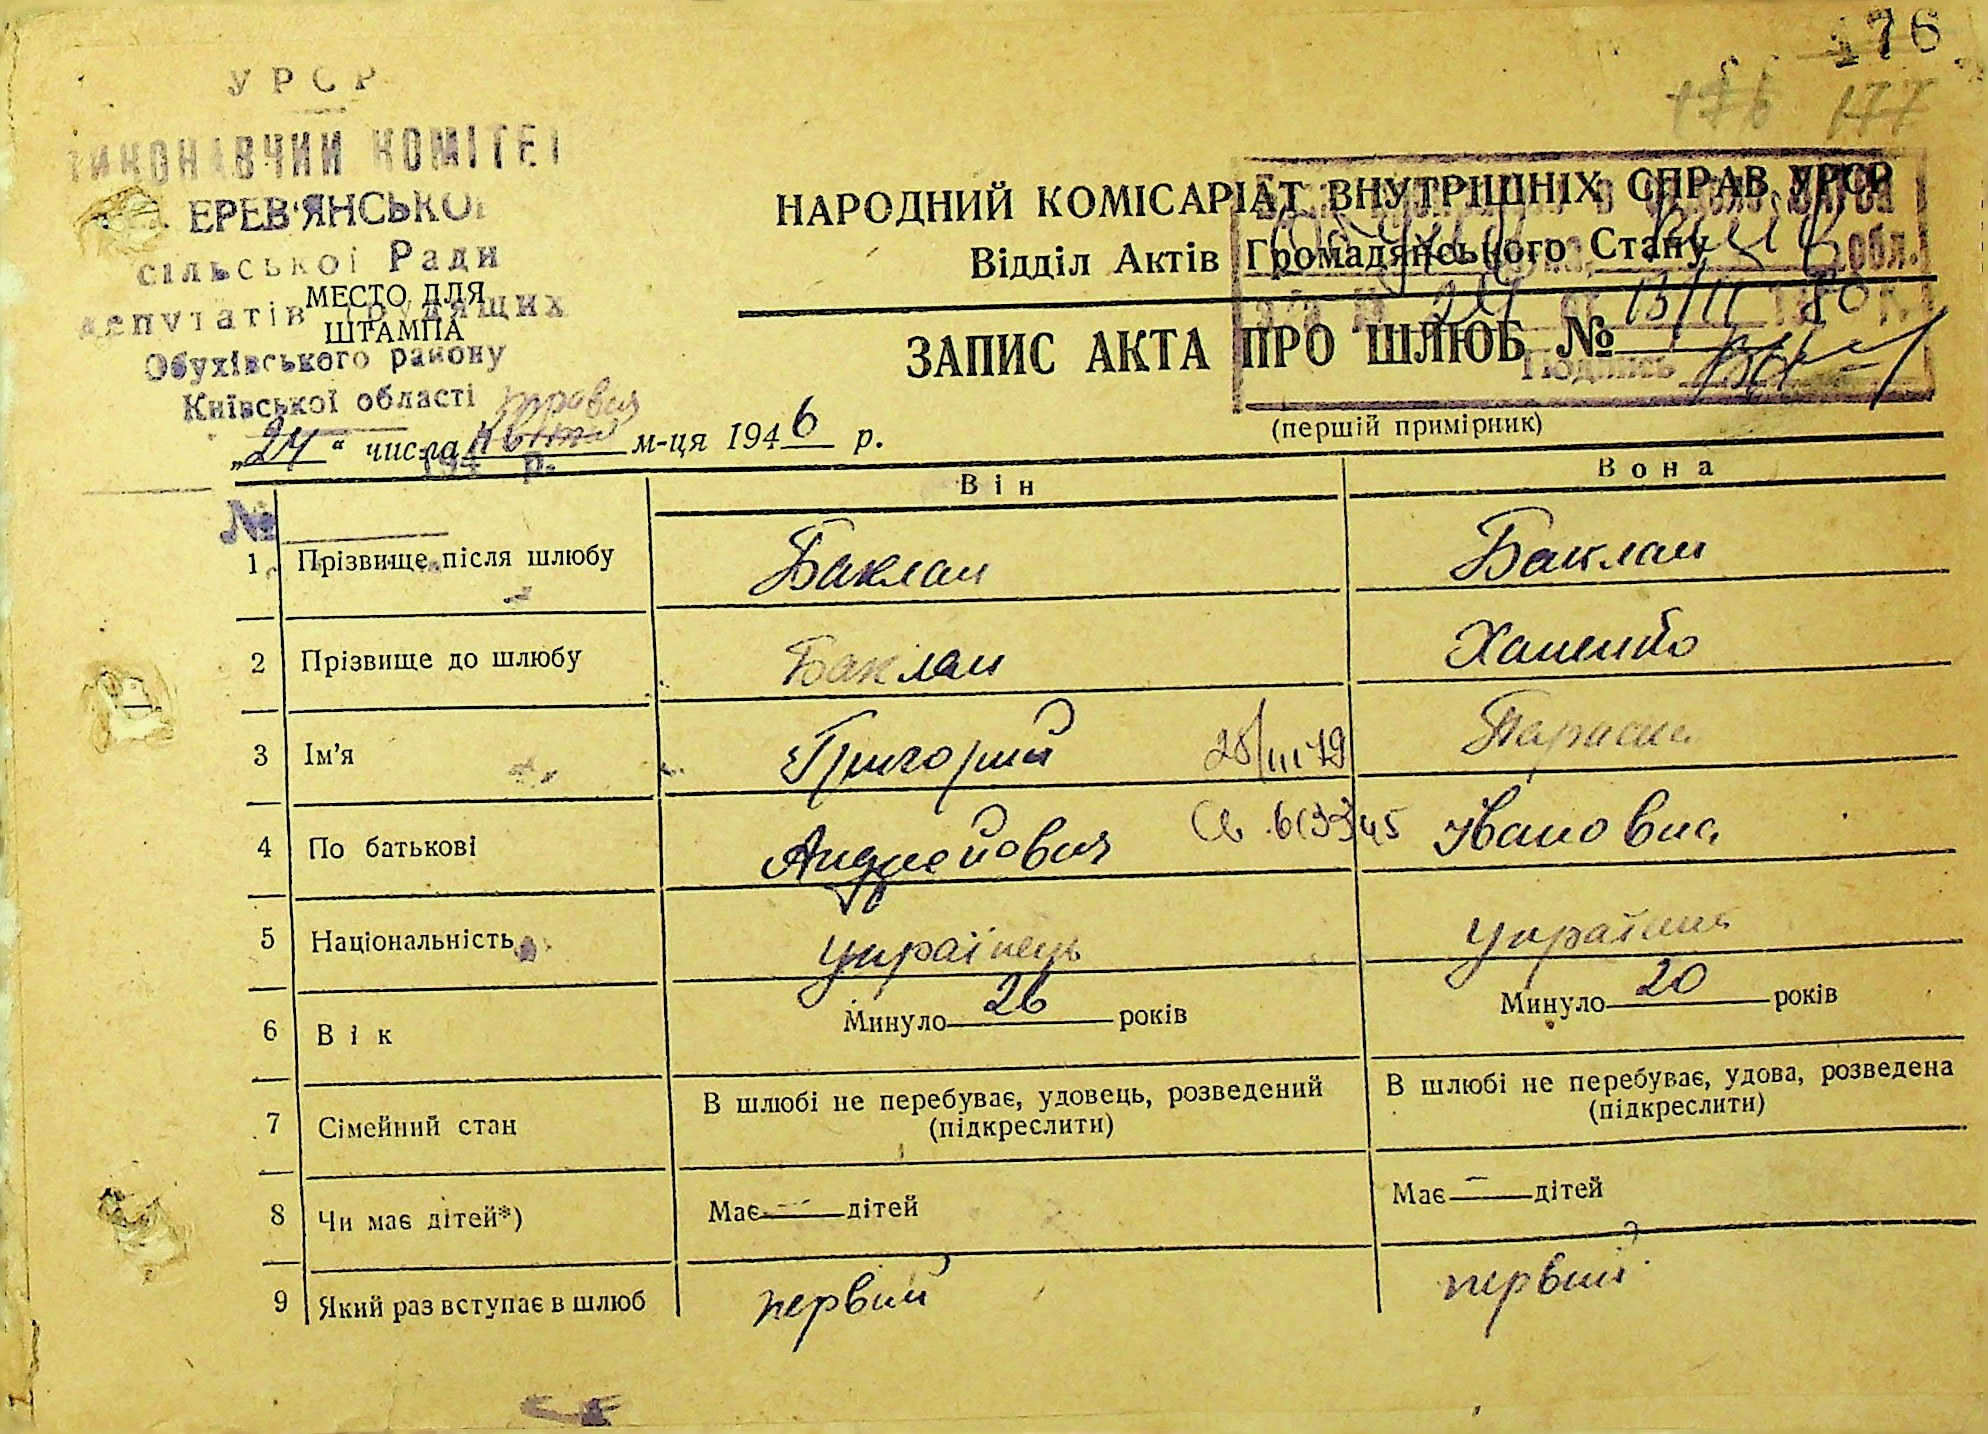 176
176 177
УРСР
ВИКОНАВЧИЙ КОМІТЕТ
ЕРЕВ'ЯНСЬКОЇ
сільської Ради
депутатів трудящих
Обухівського району
Київської області
194 р.
№
МЕСТО ДЛЯ
ШТАМПА
НАРОДНИЙ КОМІСАРІАТ ВНУТРІШНІХ СПРАВ УРСР
Відділ Актів Громадянського Стану
обл.
13/II 80
Подпись
ЗАПИС АКТА ПРО ШЛЮБ №
(перший примірник)
„24“ числа квітня травня м-ця 1946 р.
Він Вона
1 Прізвище після шлюбу Баклан Баклан
2 Прізвище до шлюбу Баклан Ханенко
3 Ім'я Григорий 28/III 79 Параска
4 По батькові Андрейович Івановна
5 Національність українець українка
6 Вік Минуло 26 років Минуло 20 років
7 Сімейний стан В шлюбі не перебуває, удовець, розведений (підкреслити) В шлюбі не перебуває, удова, розведена (підкреслити)
8 Чи має дітей*) Має — дітей Має — дітей
9 Який раз вступає в шлюб первий первий